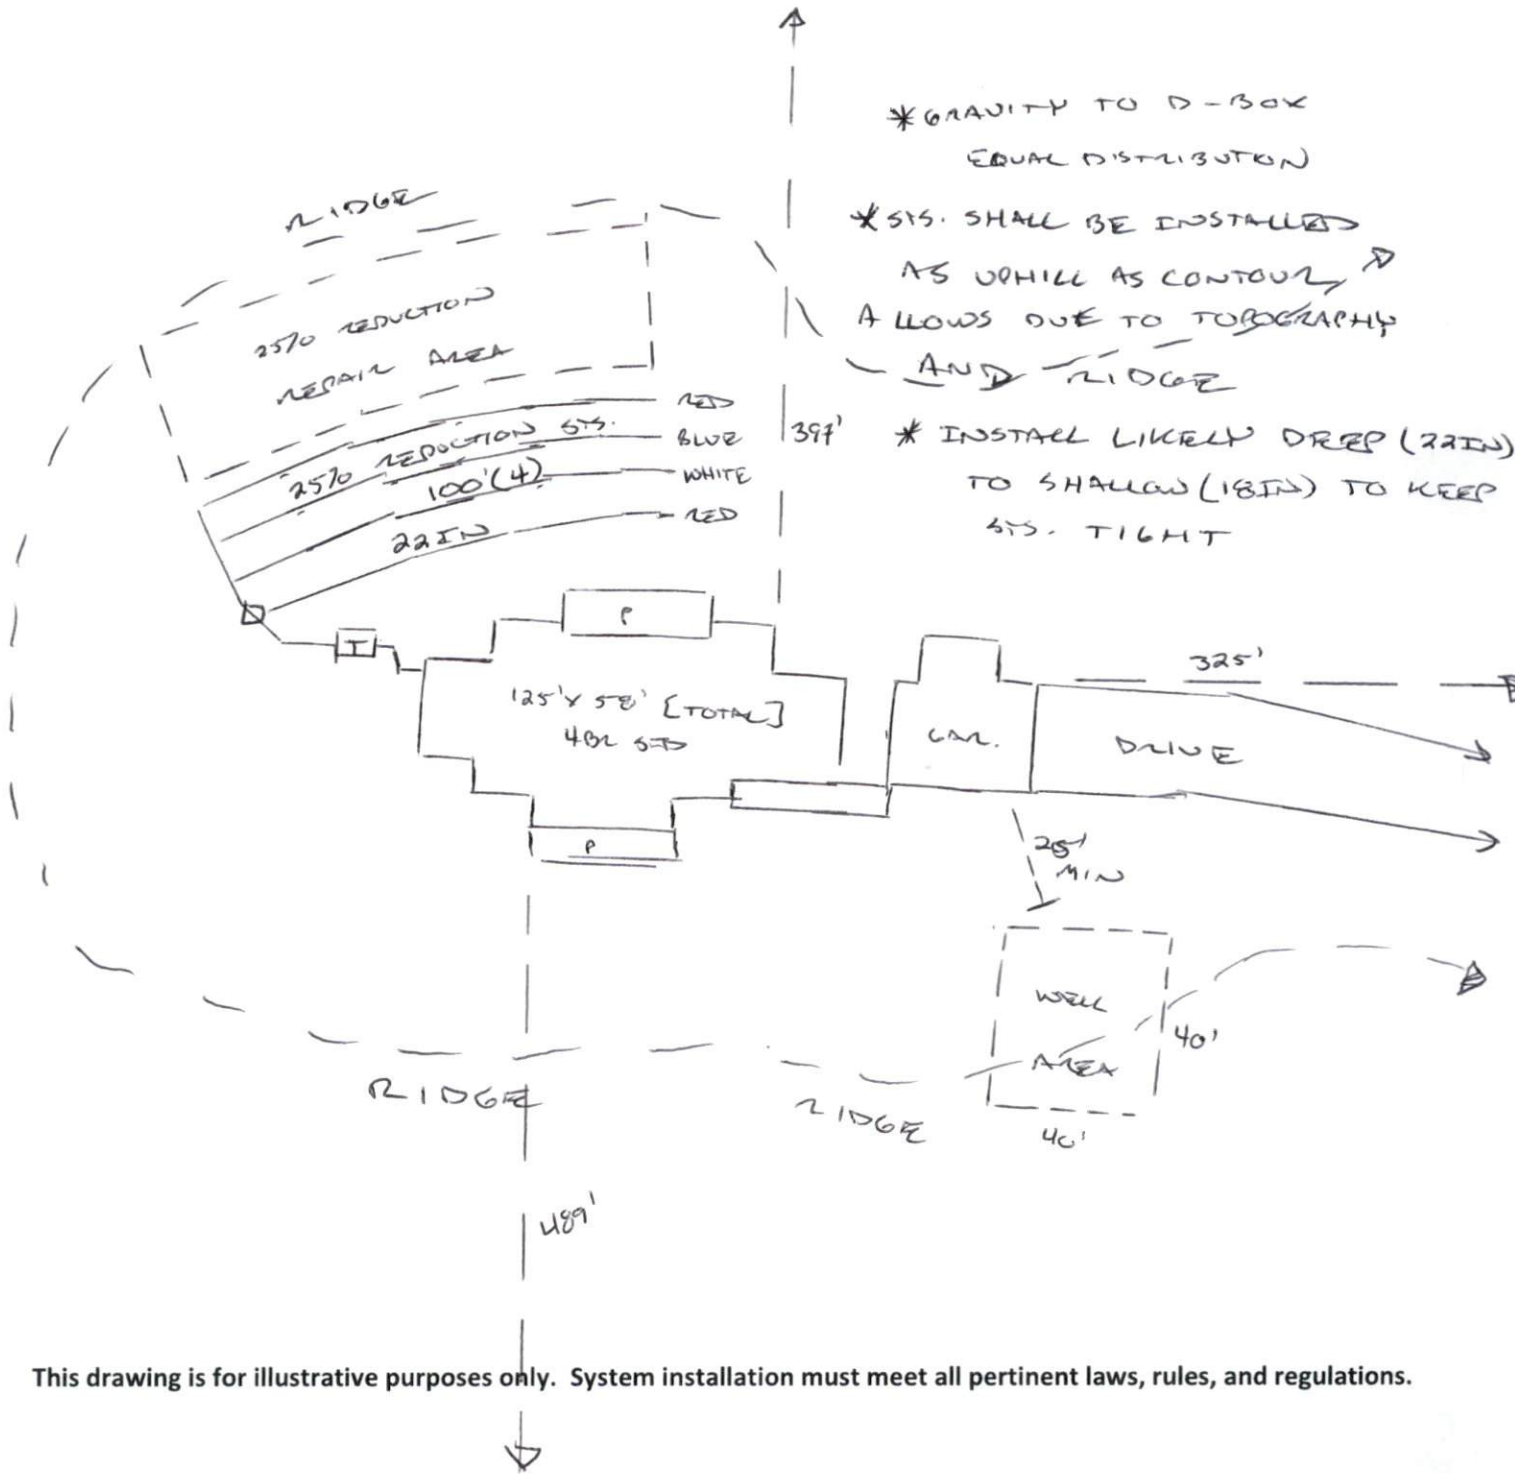 *GRAVITY TO D-BOX
EQUAL DISTRIBUTION
*SYS. SHALL BE INSTALLED
AS UPHILL AS CONTOUR
ALLOWS DUE TO TOPOGRAPHY
AND RIDGE
* INSTALL LIKELY DEEP (22IN)
TO SHALLOW (18IN) TO KEEP
SYS. TIGHT
RIDGE
25% REDUCTION
REPAIR AREA
RED
25% REDUCTION SYS.
BLUE
100'(4)
WHITE
22IN
RED
397'
P
T
125' x 58' [TOTAL]
4BR STD
GAR.
325'
DRIVE
P
25'
MIN
WELL
AREA
40'
40'
RIDGE
RIDGE
489'
This drawing is for illustrative purposes only. System installation must meet all pertinent laws, rules, and regulations.